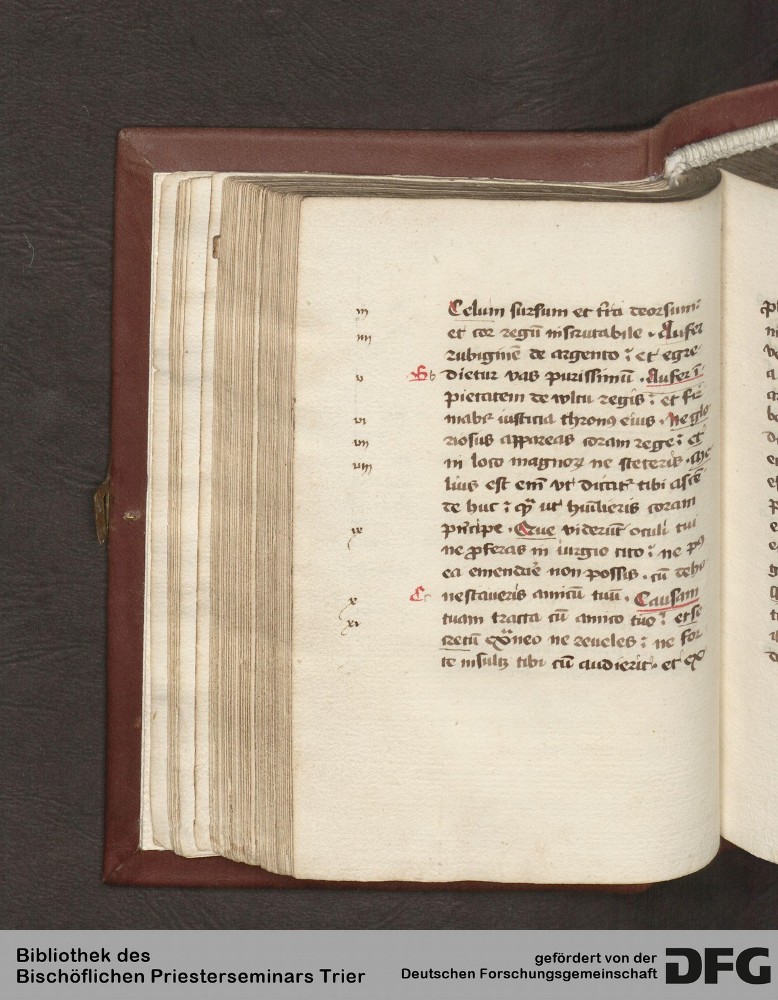 iij Celum sursum et t͛ra deorsum:
iiij et cor regū inscrutabile . Aufer
rubiginē de argento : et egre
v B b dietur vas purissimū . Aufer ī
pietatem de vultu regis : et fir
vi mabit͛ iusticia thronꝰ eius . Ne glo
vij riosus appareas coram rege : et
viij in loco magnoꝝ ne steteris . Me
lius est em̄ vt dicat͛ tibi ascē
de huc : qͣ̄ ut hūilieris coram
ix pͥncipe . Que viderūt oculi tui
ne ꝓferas in iurgio cito : ne pꝰ
ea emendar̄e non possis . cū deho
x C c nestaueris amicū tuū . Causam
xi tuam tracta cū amico tuo : et se
cretū exͣneo ne reueles : ne for
te insultꝫ tibi cū audierit . et ex
Bibliothek des
Bischöflichen Priesterseminars Trier
gefördert von der
Deutschen Forschungsgemeinschaft
DFG